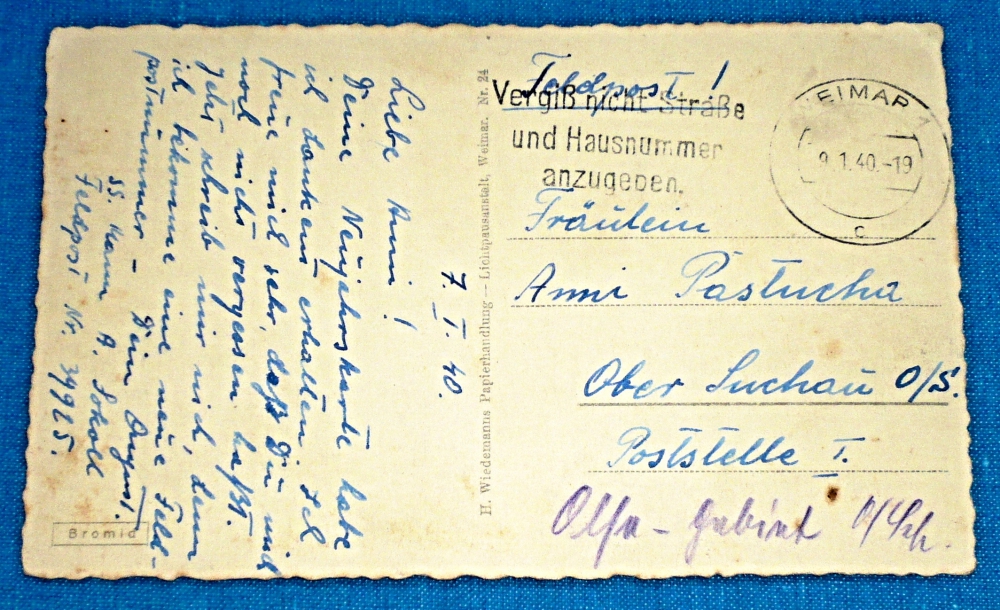 7. I. 40.
Liebe Anni !
Deine Neujahrskarte habe
ich dankend erhalten Ich
freue mich sehr, daß Du mich
noch nicht vergessen haßt.
Jetz schreib mir nich, denn
ich bekomme eine neue Feld-
postnummer Dein August.
SS. Mann A. Sokoll
Feldpost Nr. 39925.
Bromid
H. Wiedemanns Papierhandlung — Lichtpausanstalt, Weimar. Nr. 24
Feldpost !
Vergiß nicht Straße
und Hausnummer
anzugeben.
WEIMAR 1
9.1.40.-19
c
Fräulein
Anni Pastucha
Ober Suchau O/S.
Poststelle I.
Olsa - Gebiet